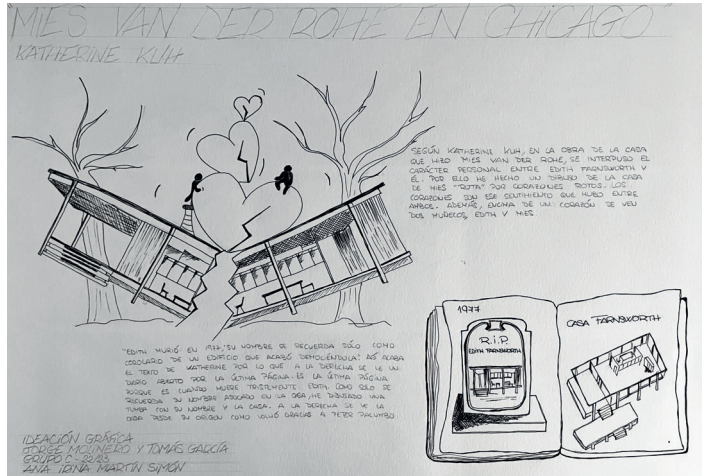 MIES VAN DER ROHE EN CHICAGO"
KATHERINE KUH
SEGÚN KATHERINE KUH, EN LA OBRA DE LA CASA
QUE HIZO MIES VAN DER ROHE, SE INTERPUSO EL
CARÁCTER PERSONAL ENTRE EDITH FARNSWORTH Y
ÉL. POR ELLO HE HECHO UN DIBUJO DE LA CASA
DE MIES "ROTA" POR CORAZONES ROTOS. LOS
CORAZONES SON ESE SENTIMIENTO QUE HUBO ENTRE
AMBOS. ADEMÁS, ENCIMA DE UN CORAZÓN SE VEN
DOS MUÑECOS, EDITH Y MIES
"EDITH MURIÓ EN 1977, SU NOMBRE SE RECUERDA SÓLO COMO
COROLARIO DE UN EDIFICIO QUE ACABÓ DEMOLIÉNDOLA" ASÍ ACABA
EL TEXTO DE KATHERINE POR LO QUE A LA DERECHA SE VE UN
DIARIO ABIERTO POR LA ÚLTIMA PÁGINA. ES LA ÚLTIMA PÁGINA
PORQUE ES CUANDO MUERE TRISTEMENTE EDITH. COMO SOLO SE
RECUERDA SU NOMBRE ASOCIADO EN LA OBRA, HE DIBUJADO UNA
TUMBA CON SU NOMBRE Y LA CASA. A LA DERECHA SE VE LA
CASA DESDE SU ORIGEN COMO VOLVIÓ GRACIAS A PETER PALUMBO
1977
R.i.P.
EDITH FARNSWORTH
CASA FARNSWORTH
IDEACIÓN GRÁFICA
JORGE MOLINERO Y TOMÁS GARCÍA
GRUPO C - 22/23
ANA IRINA MARTÍN SIMÓN